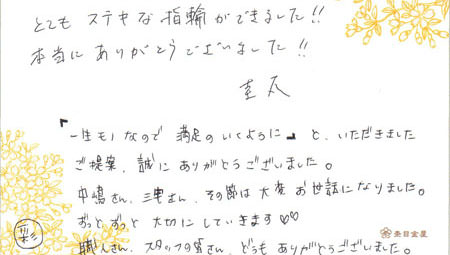 とても ステキな 指輪ができました!!
本当に ありがとうございました!!
圭太
『一生モノなので 満足のいくように』と、いただきました
ご提案、誠に ありがとうございました。
中嶋さん、三宅さん、その節は大変お世話になりました。
ずっとずっと 大切にしていきます♡♡
職人さん、スタッフの皆さん、どうもありがとうございました。
杢目金屋